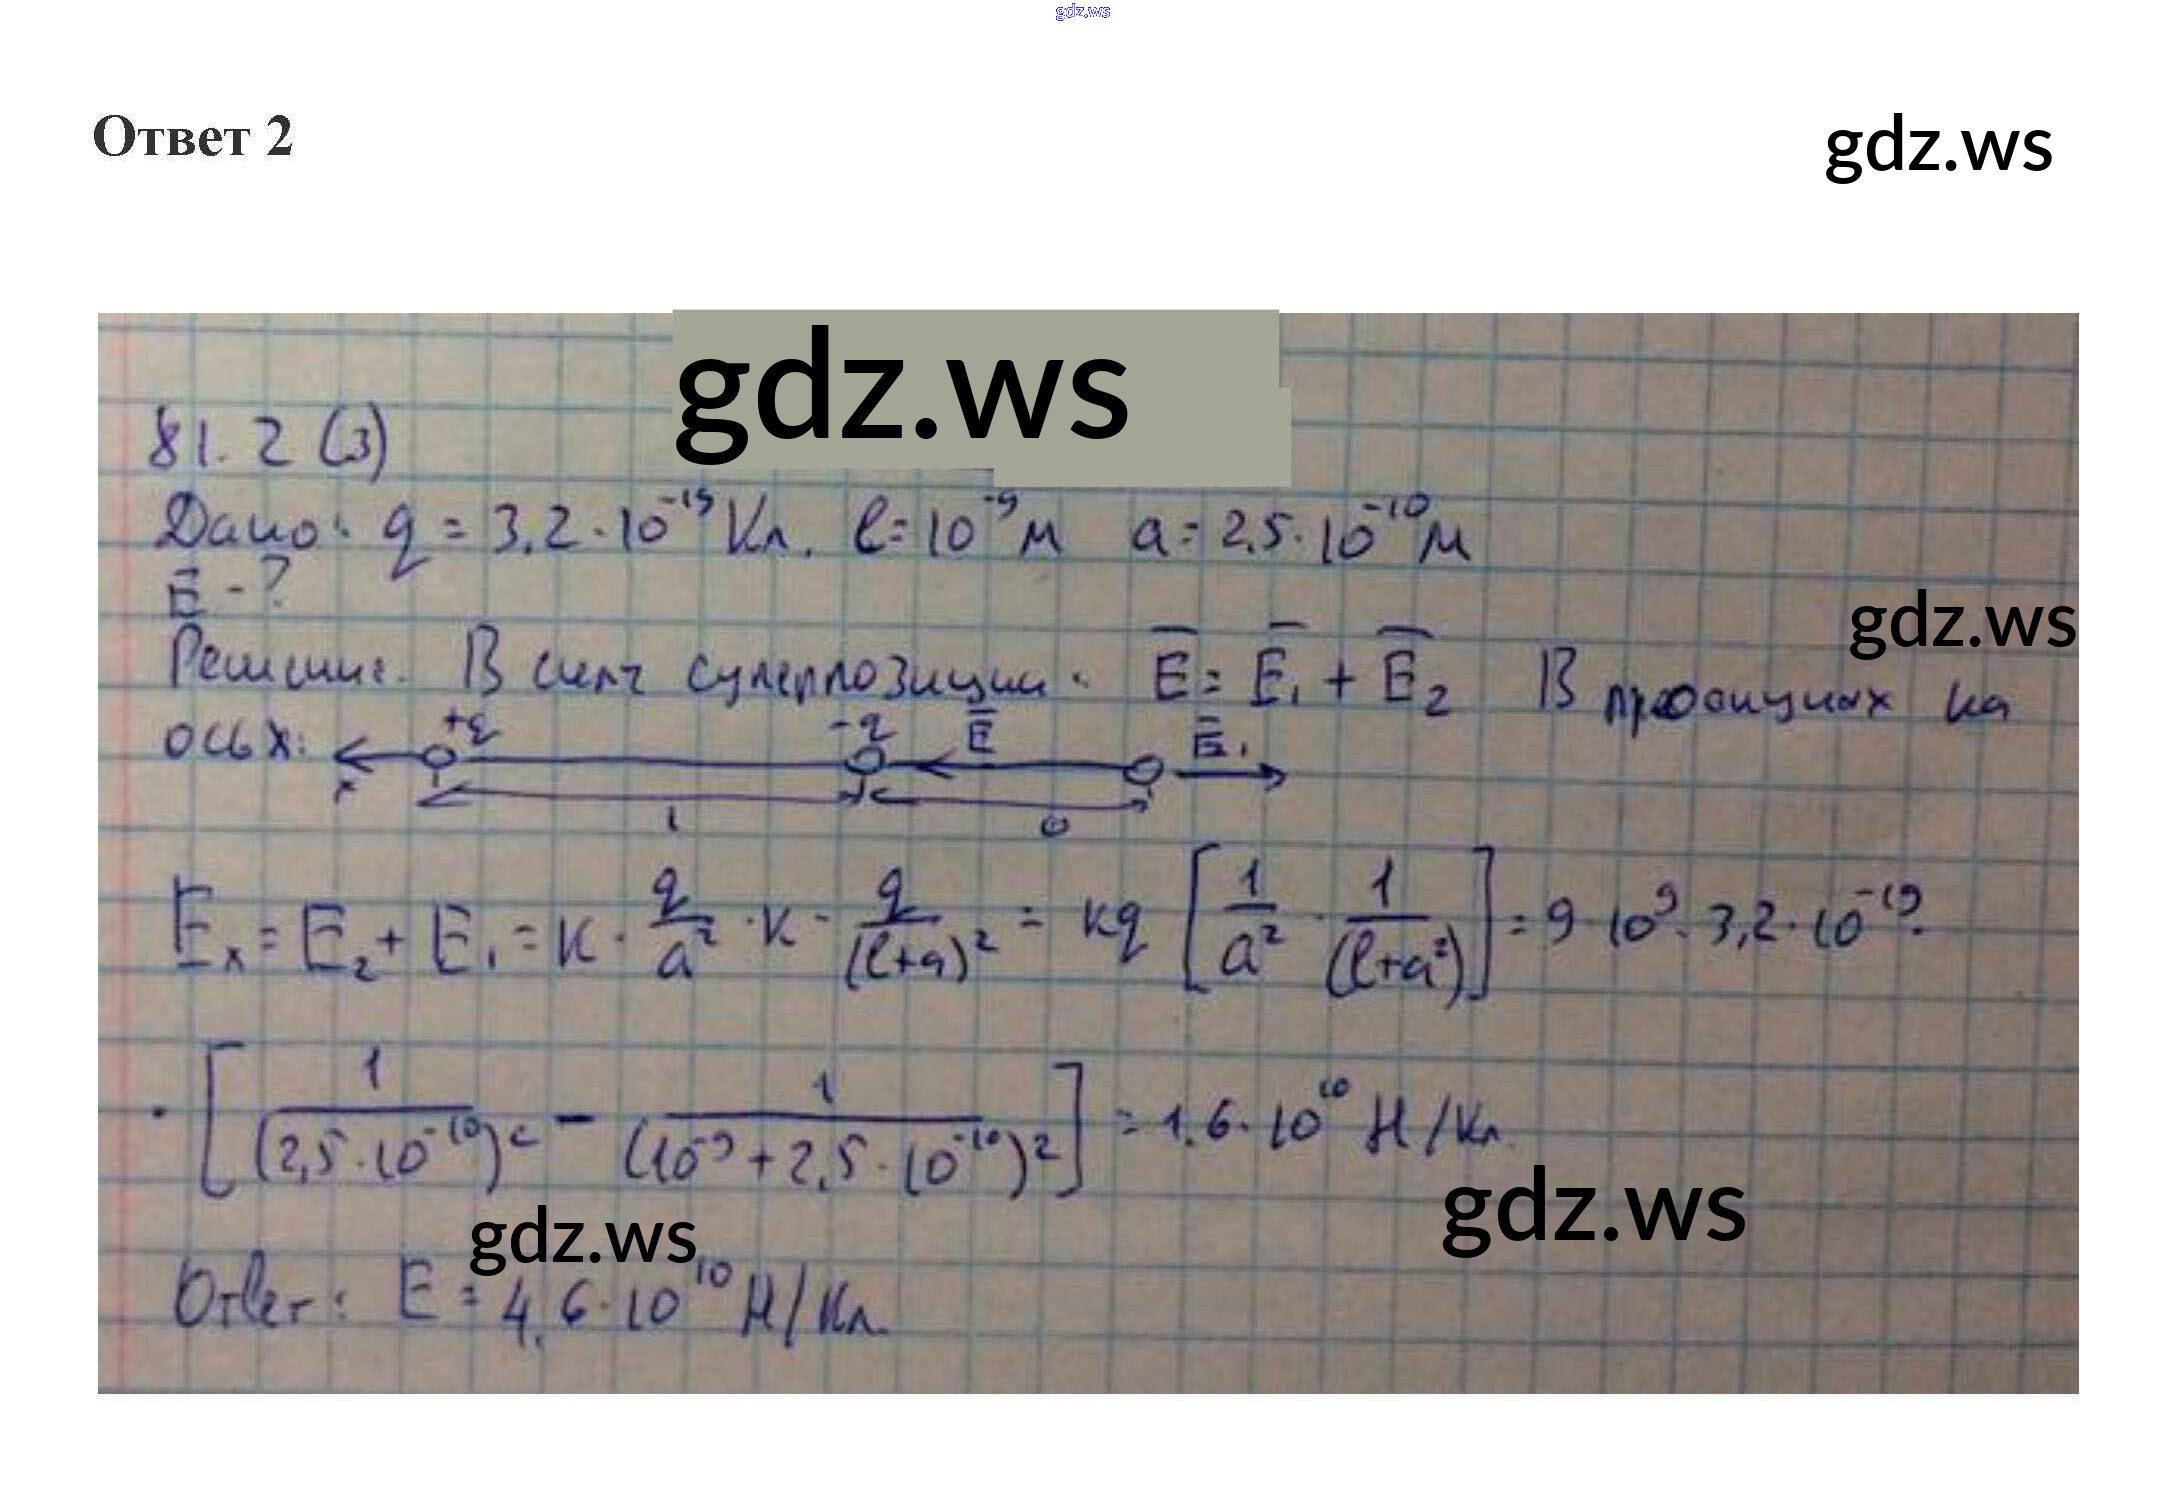 gdz.ws
Ответ 2
gdz.ws
gdz.ws
81.2 (3)
Дано: q = 3,2 · 10⁻¹⁹ Кл. l = 10⁻⁹ м a = 2,5 · 10⁻¹⁰ м
E̅ - ?
gdz.ws
Решение: В силу суперпозиции: E̅ = E̅₁ + E̅₂ В проекциях на
ось x: +q -q E̅ E̅₁
x l a
Eₓ = E₂ + E₁ = к · q/a² · к - q/(l+a)² = кq [1/a² · 1/(l+a²)] = 9 · 10⁹ · 3,2 · 10⁻¹⁹ ·
· [1/(2,5 · 10⁻¹⁰)² − 1/(10⁻⁹ + 2,5 · 10⁻¹⁰)²] = 1,6 · 10¹⁰ Н/Кл.
gdz.ws
gdz.ws
Ответ: E = 4,6 · 10¹⁰ Н/Кл.